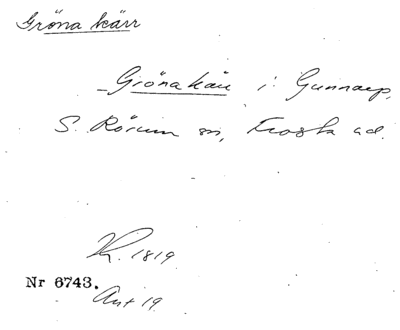 Gröna kärr
Gröna kärr i Gunnarp,
S. Rörum sn, Frosta hd.
K. 1819
Nr 6743.
Ant 19